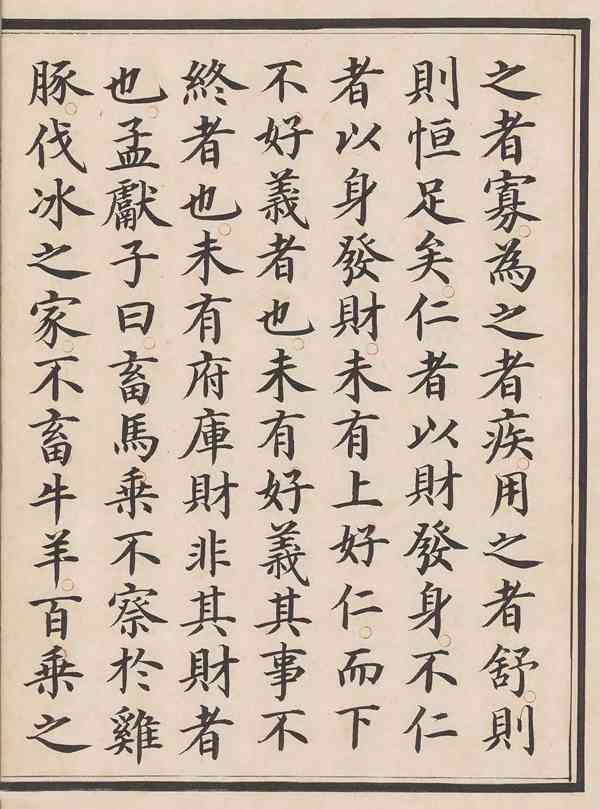 之者寡為之者疾用之者舒則
則恒足矣仁者以財發身不仁
者以身發財未有上好仁而下
不好義者也未有好義其事不
終者也未有府庫財非其財者
也孟獻子曰畜馬乘不察於雞
豚伐冰之家不畜牛羊百乘之